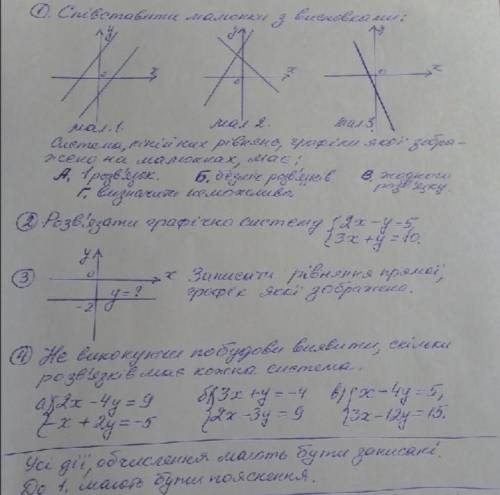 ① Співставити малюнки з висновками:
y y y
x x x
0 0
мал. 1. мал 2. мал 3.
Система лінійних рівнянь, графіки якої зобра-
жено на малюнках, має:
А. 1 розв'язок. Б. безліч розв'язків В. жодного розв'язку.
Г. визначити неможливо.
② Розв'язати графічно систему {2x-y=5,
{3x+y=10.
③ y 0 x Записати рівняння прямої,
y=? графік якої зображено.
-2
④ Не виконуючи побудови виявити, скільки
розв'язків має кожна система.
а) {2x-4y=9 б) {3x+y=-4 в) {x-4y=5,
{-x+2y=-5 {2x-3y=9 {3x-12y=15.
Усі дії, обчислення мають бути записані.
До 1. мають бути пояснення.